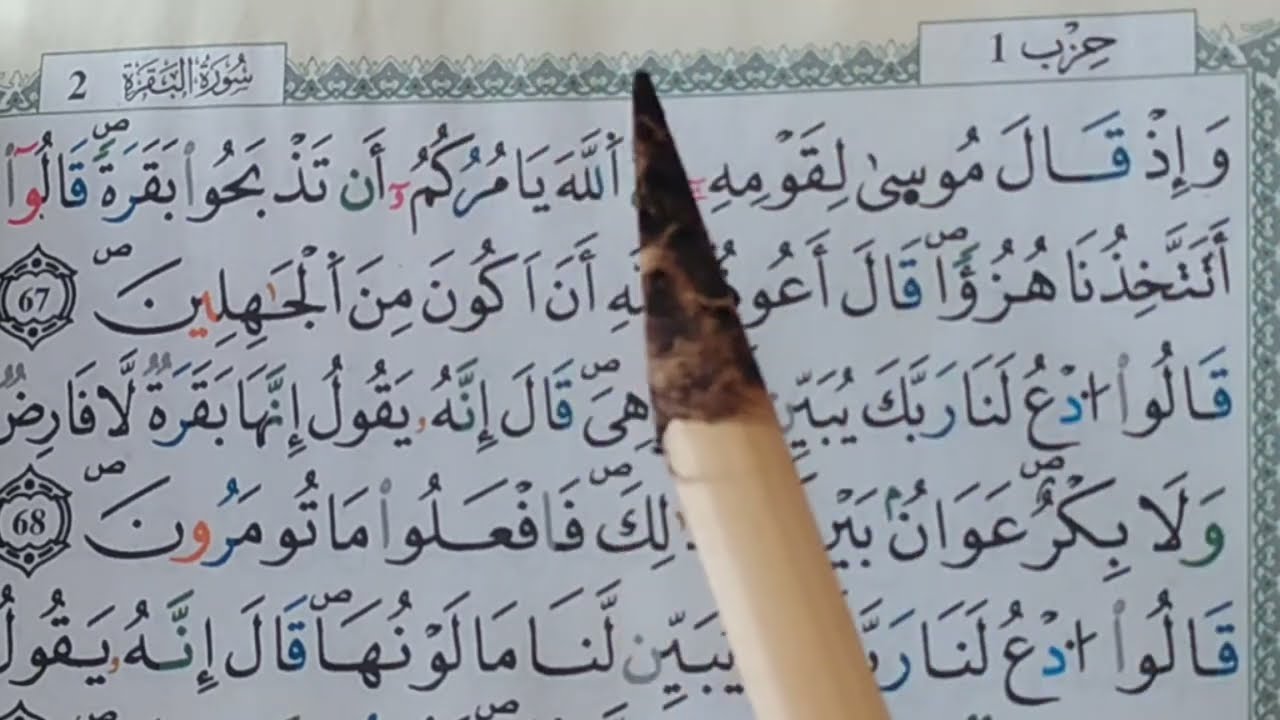 حِزْب 1
سُورَةُ الْبَقَرَة 2
وَإِذْ قَالَ مُوسىٰ لِقَوْمِهِ اَ۬للَّهَ يَامُرُكُمُ أَن تَذْبَحُوا بَقَرَةً ص قَالُوا
أَتَتَّخِذُنَا هُزُؤاً ص قَالَ أَعُو هِ أَنَ اَكُونَ مِنَ اَلْجَٰهِلِينَ ص 67
قَالُوا ادْعُ لَنَا رَبَّكَ يُبَيِّن هِيَ ص قَالَ إِنَّهُ يَقُولُ إِنَّهَا بَقَرَةٌ لَّا فَارِضٌ
وَلَا بِكْرٌ ص عَوَانٌ بَيْنَ لِكَ ص فَافْعَلُوا مَا تُومَرُونَ ص 68
قَالُوا ادْعُ لَنَا رَبَّ يُبَيِّن لَّنَا مَا لَوْنُهَا ص قَالَ إِنَّهُ يَقُولُ